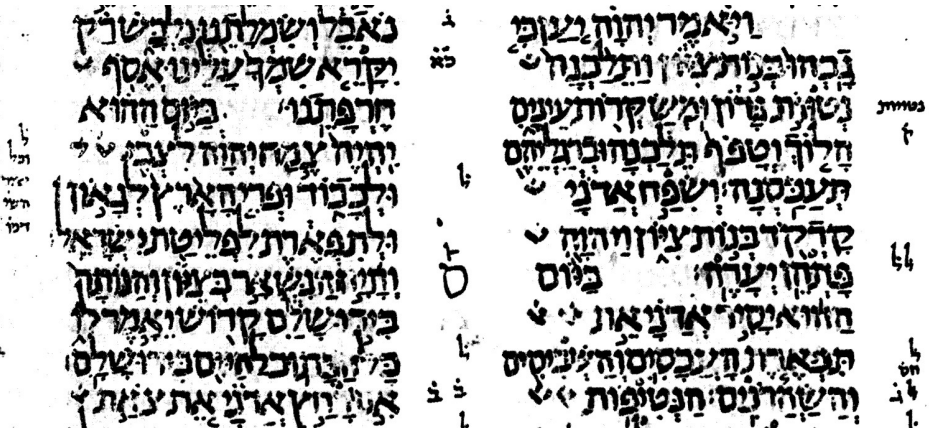 וַיֹּאמֶר יְהוָה יַעַן כִּי
גָבְהוּ בְּנוֹת צִיּוֹן וַתֵּלַכְנָה
נְטוּוֹת גָּרוֹן וּמְשַׂקְּרוֹת עֵינָיִם
הָלוֹךְ וְטָפוֹף תֵּלַכְנָה וּבְרַגְלֵיהֶם
תְּעַכַּסְנָה׃ וְשִׂפַּח אֲדֹנָי
קָדְקֹד בְּנוֹת צִיּוֹן וַיהוָה
פָּתְהֵן יְעָרֶה׃ בַּיּוֹם
הַהוּא יָסִיר אֲדֹנָי אֵת
תִּפְאֶרֶת הָעֲכָסִים וְהַשְּׁבִיסִים
וְהַשַּׂהֲרֹנִים׃ הַנְּטִיפוֹת
נֹאכֵל וְשִׂמְלָתֵנוּ נִלְבָּשׁ רַק
יִקָּרֵא שִׁמְךָ עָלֵינוּ אֱסֹף
חֶרְפָּתֵנוּ׃ בַּיּוֹם הַהוּא
יִהְיֶה צֶמַח יְהוָה לִצְבִי
וּלְכָבוֹד וּפְרִי הָאָרֶץ לְגָאוֹן
וּלְתִפְאֶרֶת לִפְלֵיטַת יִשְׂרָאֵל׃
וְהָיָה הַנִּשְׁאָר בְּצִיּוֹן וְהַנּוֹתָר
בִּירוּשָׁלִַם קָדוֹשׁ יֵאָמֶר לוֹ
כָּל הַכָּתוּב לַחַיִּים בִּירוּשָׁלִָם׃
אִם רָחַץ אֲדֹנָי אֵת צֹאַת
נטוות